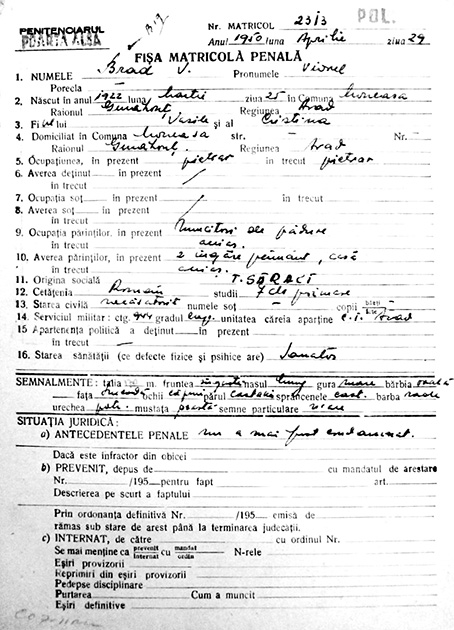 PENITENCIARUL
POARTA ALBĂ
Nr. MATRICOL 23/3
POL.
Anul 1950 luna Aprilie ziua 29
FIŞA MATRICOLĂ PENALĂ
1. NUMELE Brad V. Pronumele Viorel
Porecla
2. Născut în anul 1922 luna Martie ziua 25 în Comuna Moneasa
Raionul Gurahonţ Regiunea Arad
3. Fi lui Vasile şi al Cristina
4. Domiciliat în Comuna Moneasa str. – Nr. –
Raionul Gurahonţ Regiunea Arad
5. Ocupaţiunea, în prezent pietrar în trecut pietrar
6. Averea deţinut în prezent
în trecut
7. Ocupaţia soţ în prezent în trecut
8. Averea soţ în prezent
în trecut
9. Ocupaţia părinţilor, în prezent muncitori de pădure
în trecut
10. Averea părinţilor, în prezent 2 jugăre pământ, casă
în trecut
11. Origina socială Ţ. SĂRACĂ
12. Cetăţenia Română studii 7 cls primare
13. Starea civilă necăsătorit numele soţ – copii băeţi fete
14. Serviciul militar: ctg. 944 gradul unitatea căreia aparţine C.T. Arad
15 Apartenenţa politică a deţinut în prezent
în trecut –
16. Starea sănătăţii (ce defecte fizice şi psihice are) Sănătos
SEMNALMENTE: talia m. fruntea îngustă nasul lung gura mare bărbia ovală
faţa ochii căprui părul castaniu sprâncenele cast. barba rade
urechea potr. mustaţa poartă semne particulare n'are
SITUAŢIA JURIDICĂ:
a) ANTECEDENTELE PENALE nu a mai fost condamnat.
Dacă este infractor din obicei
b) PREVENIT, depus de cu mandatul de arestare
Nr. /195 pentru fapt art.
Descrierea pe scurt a faptului
Prin ordonanţa definitivă Nr. /195 emisă de
rămas sub stare de arest până la terminarea judecăţii.
c) INTERNAT, de către cu ordinul Nr.
Se mai menţine ca prevenit internat cu mandat ordin N-rele
Eşiri provizorii
Reprimiri din eşiri provizorii
Pedepse disciplinare
Purtarea Cum a muncit
Eşiri definitive